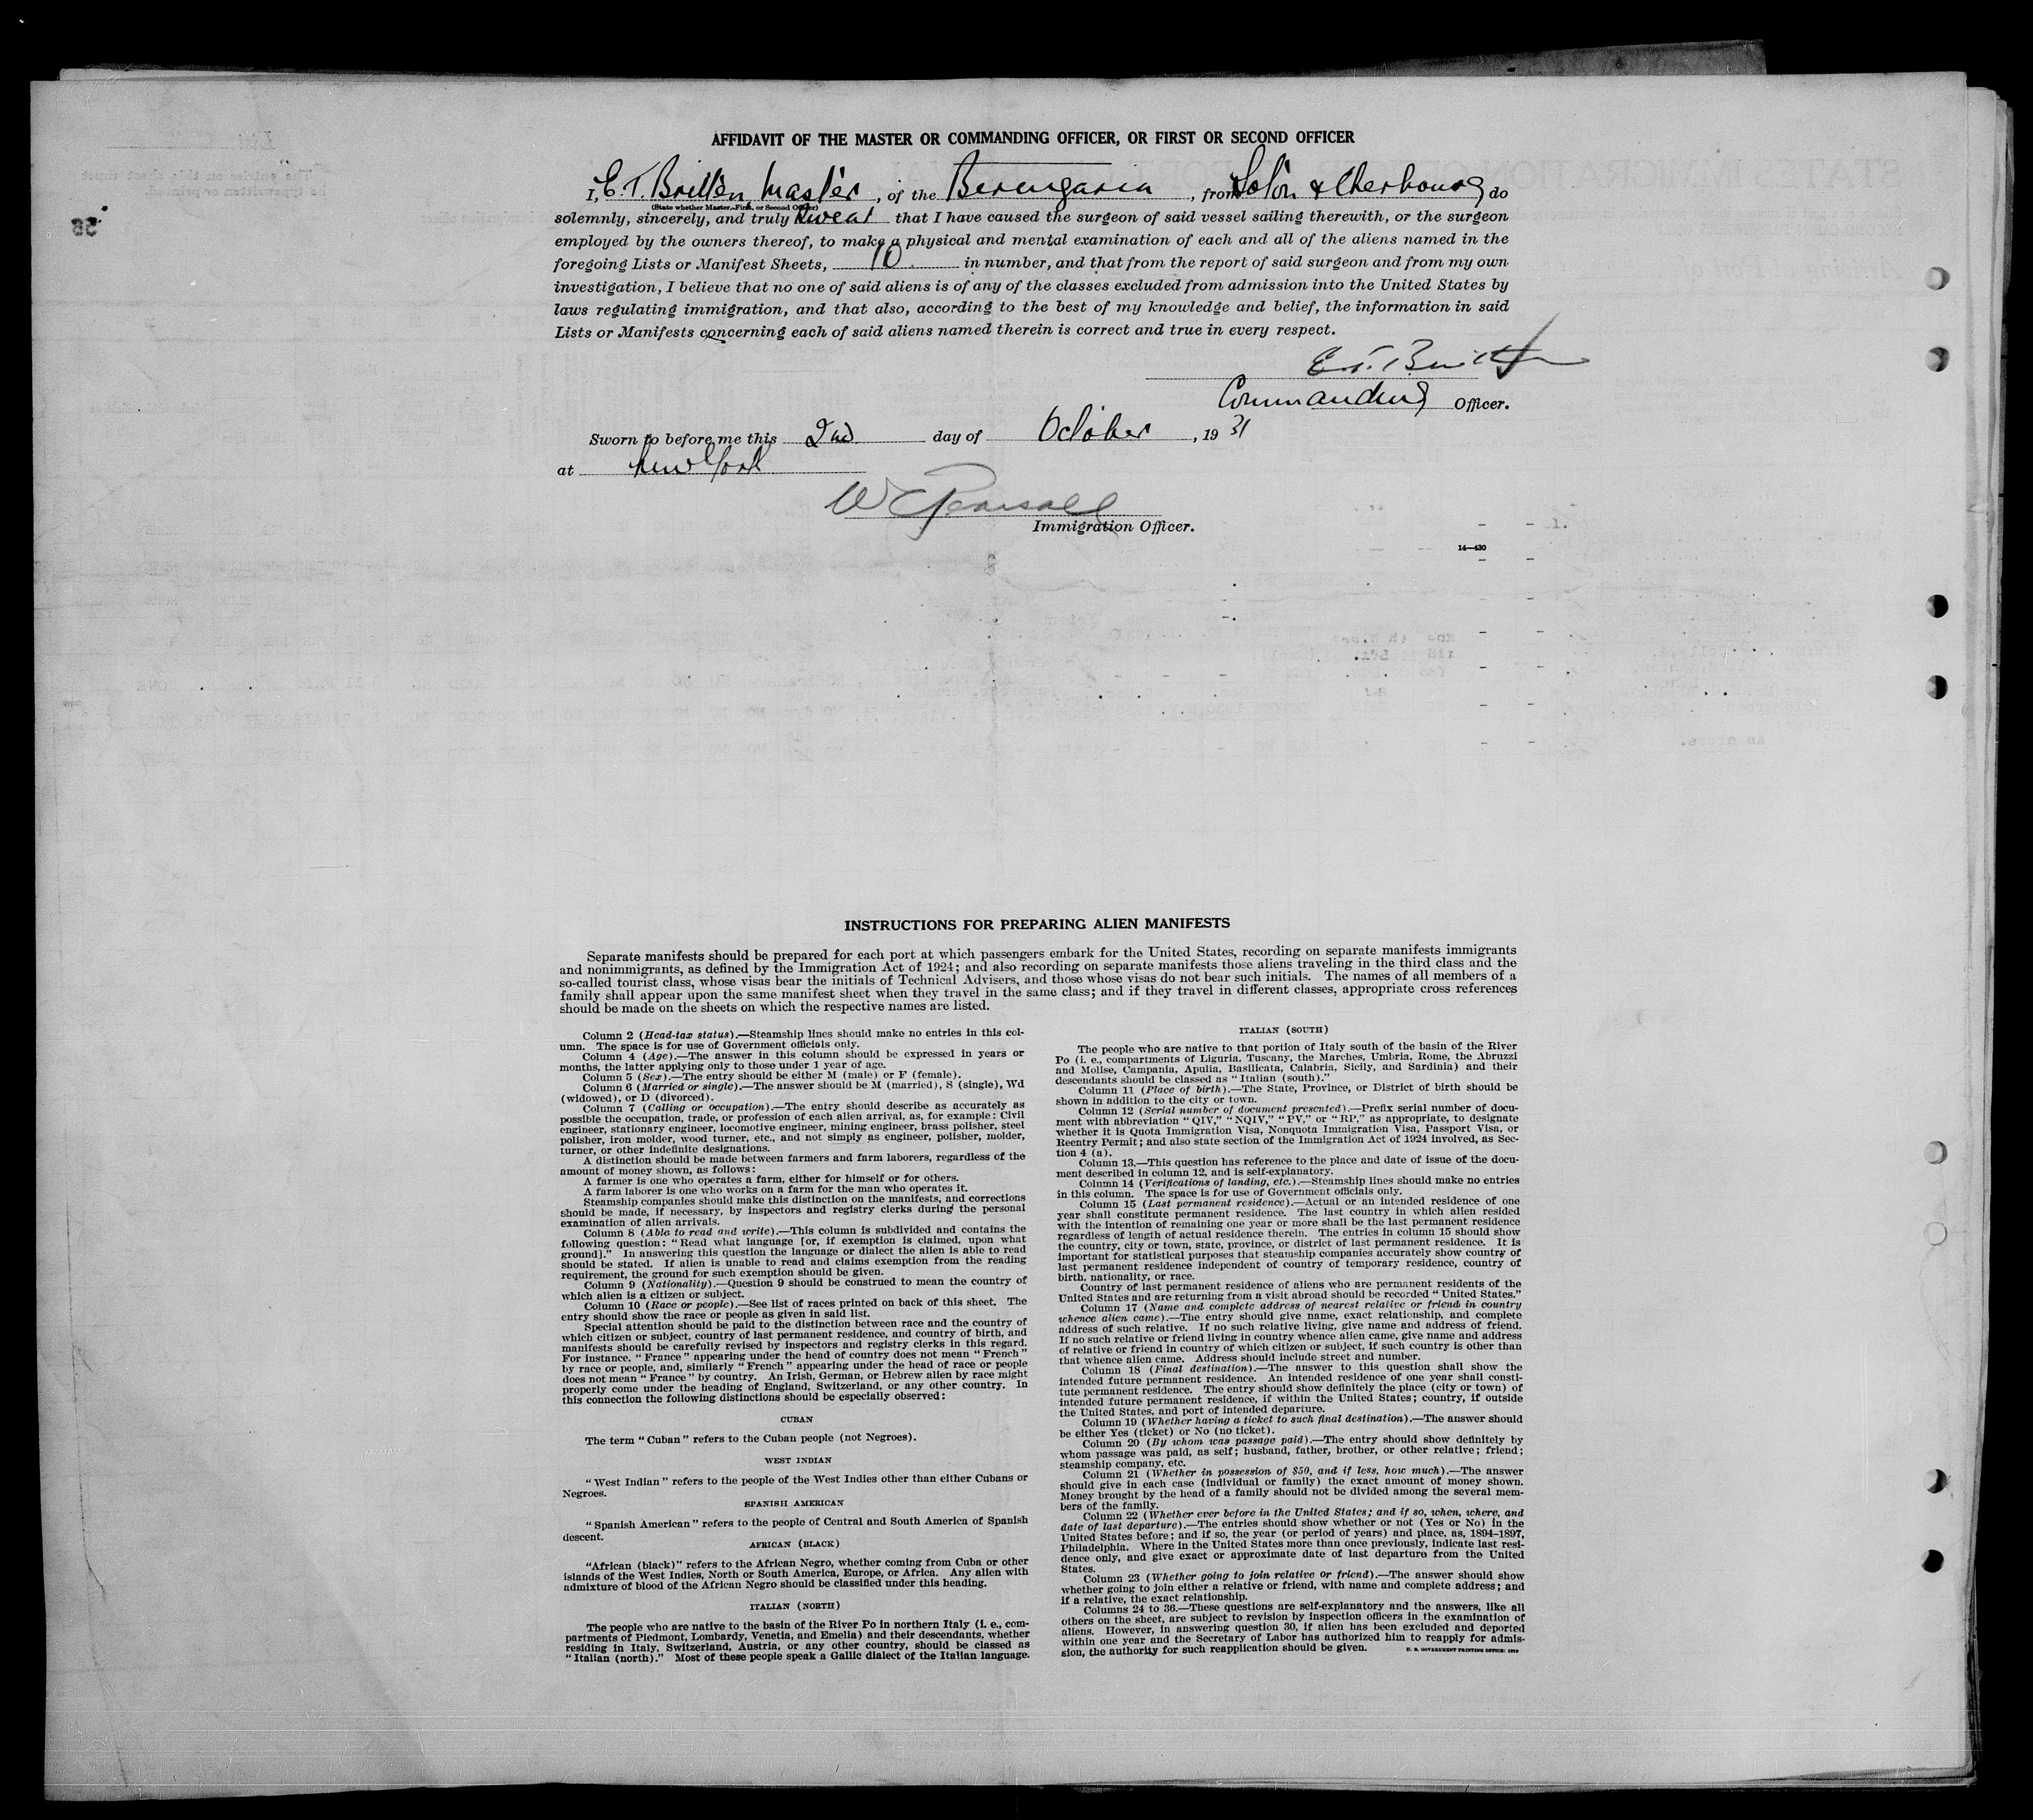 AFFIDAVIT OF THE MASTER OR COMMANDING OFFICER, OR FIRST OR SECOND OFFICER
I, E. T. Britten, Master, of the Berengaria, from Soton & Cherbourg do
(State whether Master, First, or Second Officer)
solemnly, sincerely, and truly swear that I have caused the surgeon of said vessel sailing therewith, or the surgeon
employed by the owners thereof, to make a physical and mental examination of each and all of the aliens named in the
foregoing Lists or Manifest Sheets, 10 in number, and that from the report of said surgeon and from my own
investigation, I believe that no one of said aliens is of any of the classes excluded from admission into the United States by
laws regulating immigration, and that also, according to the best of my knowledge and belief, the information in said
Lists or Manifests concerning each of said aliens named therein is correct and true in every respect.
E. T. Britten
Commanding Officer.
Sworn to before me this 2nd day of October, 1931
at New York
W C Pearsall
Immigration Officer.
14—430
INSTRUCTIONS FOR PREPARING ALIEN MANIFESTS
Separate manifests should be prepared for each port at which passengers embark for the United States, recording on separate manifests immigrants
and nonimmigrants, as defined by the Immigration Act of 1924; and also recording on separate manifests those aliens traveling in the third class and the
so-called tourist class, whose visas bear the initials of Technical Advisers, and those whose visas do not bear such initials. The names of all members of a
family shall appear upon the same manifest sheet when they travel in the same class; and if they travel in different classes, appropriate cross references
should be made on the sheets on which the respective names are listed.
Column 2 (Head-tax status).—Steamship lines should make no entries in this col-
umn. The space is for use of Government officials only.
Column 4 (Age).—The answer in this column should be expressed in years or
months, the latter applying only to those under 1 year of age.
Column 5 (Sex).—The entry should be either M (male) or F (female).
Column 6 (Married or single).—The answer should be M (married), S (single), Wd
(widowed), or D (divorced).
Column 7 (Calling or occupation).—The entry should describe as accurately as
possible the occupation, trade, or profession of each alien arrival, as, for example: Civil
engineer, stationary engineer, locomotive engineer, mining engineer, brass polisher, steel
polisher, iron molder, wood turner, etc., and not simply as engineer, polisher, molder,
turner, or other indefinite designations.
A distinction should be made between farmers and farm laborers, regardless of the
amount of money shown, as follows:
A farmer is one who operates a farm, either for himself or for others.
A farm laborer is one who works on a farm for the man who operates it.
Steamship companies should make this distinction on the manifests, and corrections
should be made, if necessary, by inspectors and registry clerks during the personal
examination of alien arrivals.
Column 8 (Able to read and write).—This column is subdivided and contains the
following question: "Read what language [or, if exemption is claimed, upon what
ground]." In answering this question the language or dialect the alien is able to read
should be stated. If alien is unable to read and claims exemption from the reading
requirement, the ground for such exemption should be given.
Column 9 (Nationality).—Question 9 should be construed to mean the country of
which alien is a citizen or subject.
Column 10 (Race or people).—See list of races printed on back of this sheet. The
entry should show the race or people as given in said list.
Special attention should be paid to the distinction between race and the country of
which citizen or subject, country of last permanent residence, and country of birth, and
manifests should be carefully revised by inspectors and registry clerks in this regard.
For instance, "France" appearing under the head of country does not mean "French"
by race or people, and, similarly "French" appearing under the head of race or people
does not mean "France" by country. An Irish, German, or Hebrew alien by race might
properly come under the heading of England, Switzerland, or any other country. In
this connection the following distinctions should be especially observed:
CUBAN
The term "Cuban" refers to the Cuban people (not Negroes).
WEST INDIAN
"West Indian" refers to the people of the West Indies other than either Cubans or
Negroes.
SPANISH AMERICAN
"Spanish American" refers to the people of Central and South America of Spanish
descent.
AFRICAN (BLACK)
"African (black)" refers to the African Negro, whether coming from Cuba or other
islands of the West Indies, North or South America, Europe, or Africa. Any alien with
admixture of blood of the African Negro should be classified under this heading.
ITALIAN (NORTH)
The people who are native to the basin of the River Po in northern Italy (i. e., com-
partments of Piedmont, Lombardy, Venetia, and Emelia) and their descendants, whether
residing in Italy, Switzerland, Austria, or any other country, should be classed as
"Italian (north)." Most of these people speak a Gallic dialect of the Italian language.
ITALIAN (SOUTH)
The people who are native to that portion of Italy south of the basin of the River
Po (i. e., compartments of Liguria, Tuscany, the Marches, Umbria, Rome, the Abruzzi
and Molise, Campania, Apulia, Basilicata, Calabria, Sicily, and Sardinia) and their
descendants should be classed as "Italian (south)."
Column 11 (Place of birth).—The State, Province, or District of birth should be
shown in addition to the city or town.
Column 12 (Serial number of document presented).—Prefix serial number of docu-
ment with abbreviation "QIV," "NQIV," "PV," or "RP," as appropriate, to designate
whether it is Quota Immigration Visa, Nonquota Immigration Visa, Passport Visa, or
Reentry Permit; and also state section of the Immigration Act of 1924 involved, as Sec-
tion 4 (a).
Column 13.—This question has reference to the place and date of issue of the docu-
ment described in column 12, and is self-explanatory.
Column 14 (Verifications of landing, etc.).—Steamship lines should make no entries
in this column. The space is for use of Government officials only.
Column 15 (Last permanent residence).—Actual or an intended residence of one
year shall constitute permanent residence. The last country in which alien resided
with the intention of remaining one year or more shall be the last permanent residence
regardless of length of actual residence therein. The entries in column 15 should show
the country, city or town, state, province, or district of last permanent residence. It is
important for statistical purposes that steamship companies accurately show country of
last permanent residence independent of country of temporary residence, country of
birth, nationality, or race.
Country of last permanent residence of aliens who are permanent residents of the
United States and are returning from a visit abroad should be recorded "United States."
Column 17 (Name and complete address of nearest relative or friend in country
whence alien came).—The entry should give name, exact relationship, and complete
address of such relative. If no such relative living, give name and address of friend.
If no such relative or friend living in country whence alien came, give name and address
of relative or friend in country of which citizen or subject, if such country is other than
that whence alien came. Address should include street and number.
Column 18 (Final destination).—The answer to this question shall show the
intended future permanent residence. An intended residence of one year shall consti-
tute permanent residence. The entry should show definitely the place (city or town) of
intended future permanent residence, if within the United States; country, if outside
the United States, and port of intended departure.
Column 19 (Whether having a ticket to such final destination).—The answer should
be either Yes (ticket) or No (no ticket).
Column 20 (By whom was passage paid).—The entry should show definitely by
whom passage was paid, as self; husband, father, brother, or other relative; friend;
steamship company, etc.
Column 21 (Whether in possession of $50, and if less, how much).—The answer
should give in each case (individual or family) the exact amount of money shown.
Money brought by the head of a family should not be divided among the several mem-
bers of the family.
Column 22 (Whether ever before in the United States; and if so, when, where, and
date of last departure).—The entries should show whether or not (Yes or No) in the
United States before; and if so, the year (or period of years) and place, as, 1894–1897,
Philadelphia. Where in the United States more than once previously, indicate last resi-
dence only, and give exact or approximate date of last departure from the United
States.
Column 23 (Whether going to join relative or friend).—The answer should show
whether going to join either a relative or friend, with name and complete address; and
if a relative, the exact relationship.
Columns 24 to 36.—These questions are self-explanatory and the answers, like all
others on the sheet, are subject to revision by inspection officers in the examination of
aliens. However, in answering question 30, if alien has been excluded and deported
within one year and the Secretary of Labor has authorized him to reapply for admis-
sion, the authority for such reapplication should be given.
U. S. GOVERNMENT PRINTING OFFICE: